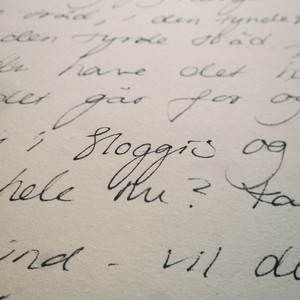 tråd, i den tynde
den tynde tråd
have det
det går for og
i Sloggis og
hele nu? Ta
ind - vil de